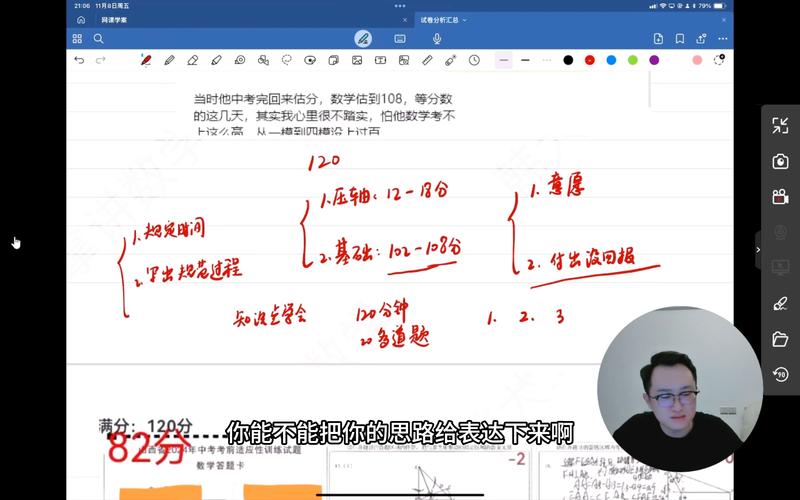 21:06 11月8日周五
79%
网课学案
试卷分析汇总
当时他中考完回来估分，数学估到108，等分数
的这几天，其实我心里很不踏实，怕他数学考不
上这么高，从一模到四模没上过百
120
1.压轴：12-18分
2.基础：102-108分
1.意愿
2.付出没回报
1.规定时间
2.写出规范过程
知识点学会
120分钟
20多道题
1. 2. 3
满分：120分
82分
2024年中考考前适应性训练试题
数学答题卡
-2
你能不能把你的思路给表达下来啊